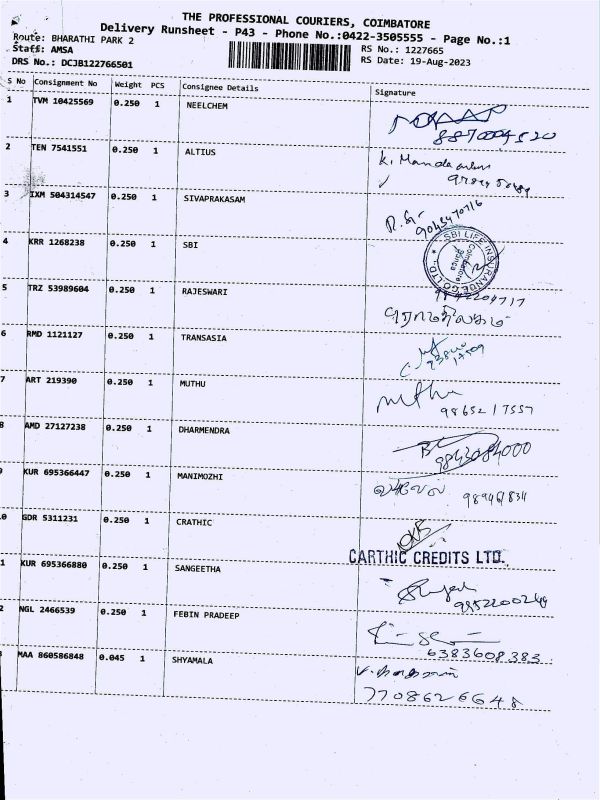 THE PROFESSIONAL COURIERS, COIMBATORE
Delivery Runsheet - P43 - Phone No.:0422-3505555 - Page No.:1
Route: BHARATHI PARK 2
Staff: AMSA
RS No.: 1227665
DRS No.: DCJB122766501
RS Date: 19-Aug-2023
S No Consignment No Weight PCS Consignee Details Signature
1 TVM 10425569 0.250 1 NEELCHEM
2 TEN 7541551 0.250 1 ALTIUS
K. Manda
3 IXM 504314547 0.250 1 SIVAPRAKASAM
4 KRR 1268238 0.250 1 SBI
SBI LIFE INSURANCE CO. LTD.
5 TRZ 53989604 0.250 1 RAJESWARI
6 RMD 1121127 0.250 1 TRANSASIA
7 ART 219390 0.250 1 MUTHU
Muthu
98652 17557
8 AMD 27127238 0.250 1 DHARMENDRA
9843084000
9 KUR 695366447 0.250 1 MANIMOZHI
0 GDR 5311231 0.250 1 CRATHIC
CARTHIC CREDITS LTD.
1 KUR 695366880 0.250 1 SANGEETHA
2 NGL 2466539 0.250 1 FEBIN PRADEEP
6383608383
MAA 860586848 0.045 1 SHYAMALA
7708626648